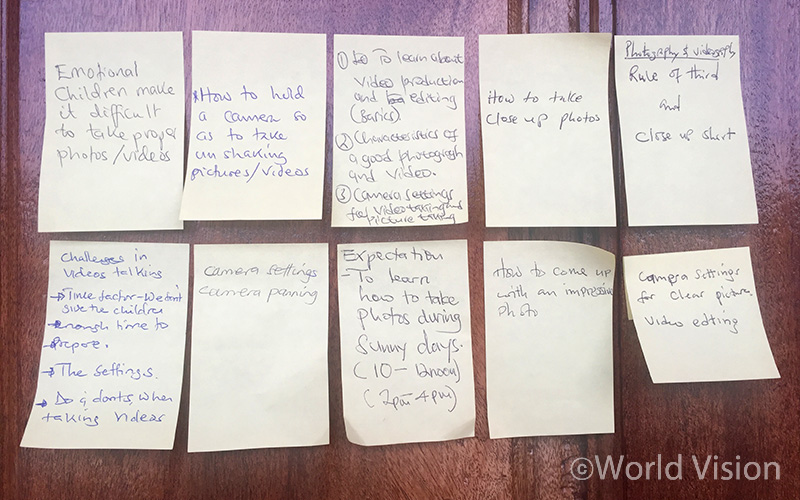 Emotional
Children make
it difficult
to take proper
photos/videos
How to hold
a camera so
as to take
un shaking
pictures/videos
① To learn about
Video production
and editing
(Basics)
② Characteristics of
a good photograph
and Video.
③ Camera settings
for Video taking and
Picture taking
How to take
Close up photos
Photography & videography
Rule of third
and
Close up short
Challenges in
Videos talking
→ Time factor - We don't
give the children
enough time to
prepare.
→ The settings.
→ Do & donts, when
taking videos
Camera settings
Camera panning
Expectation
- To learn
how to take
photos during
Sunny days.
(10 - 12noon)
(2pm - 4pm)
How to come up
with an impressive
photo
Camera settings
for clear picture.
Video editing
©World Vision